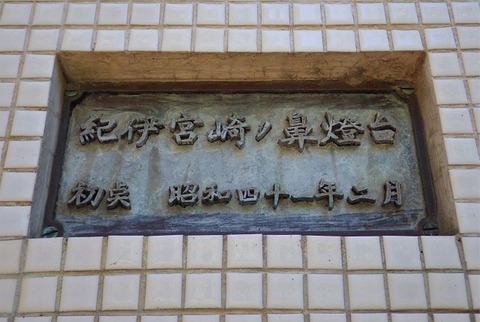 紀伊宮崎ノ鼻燈台
初点 昭和四十一年二月